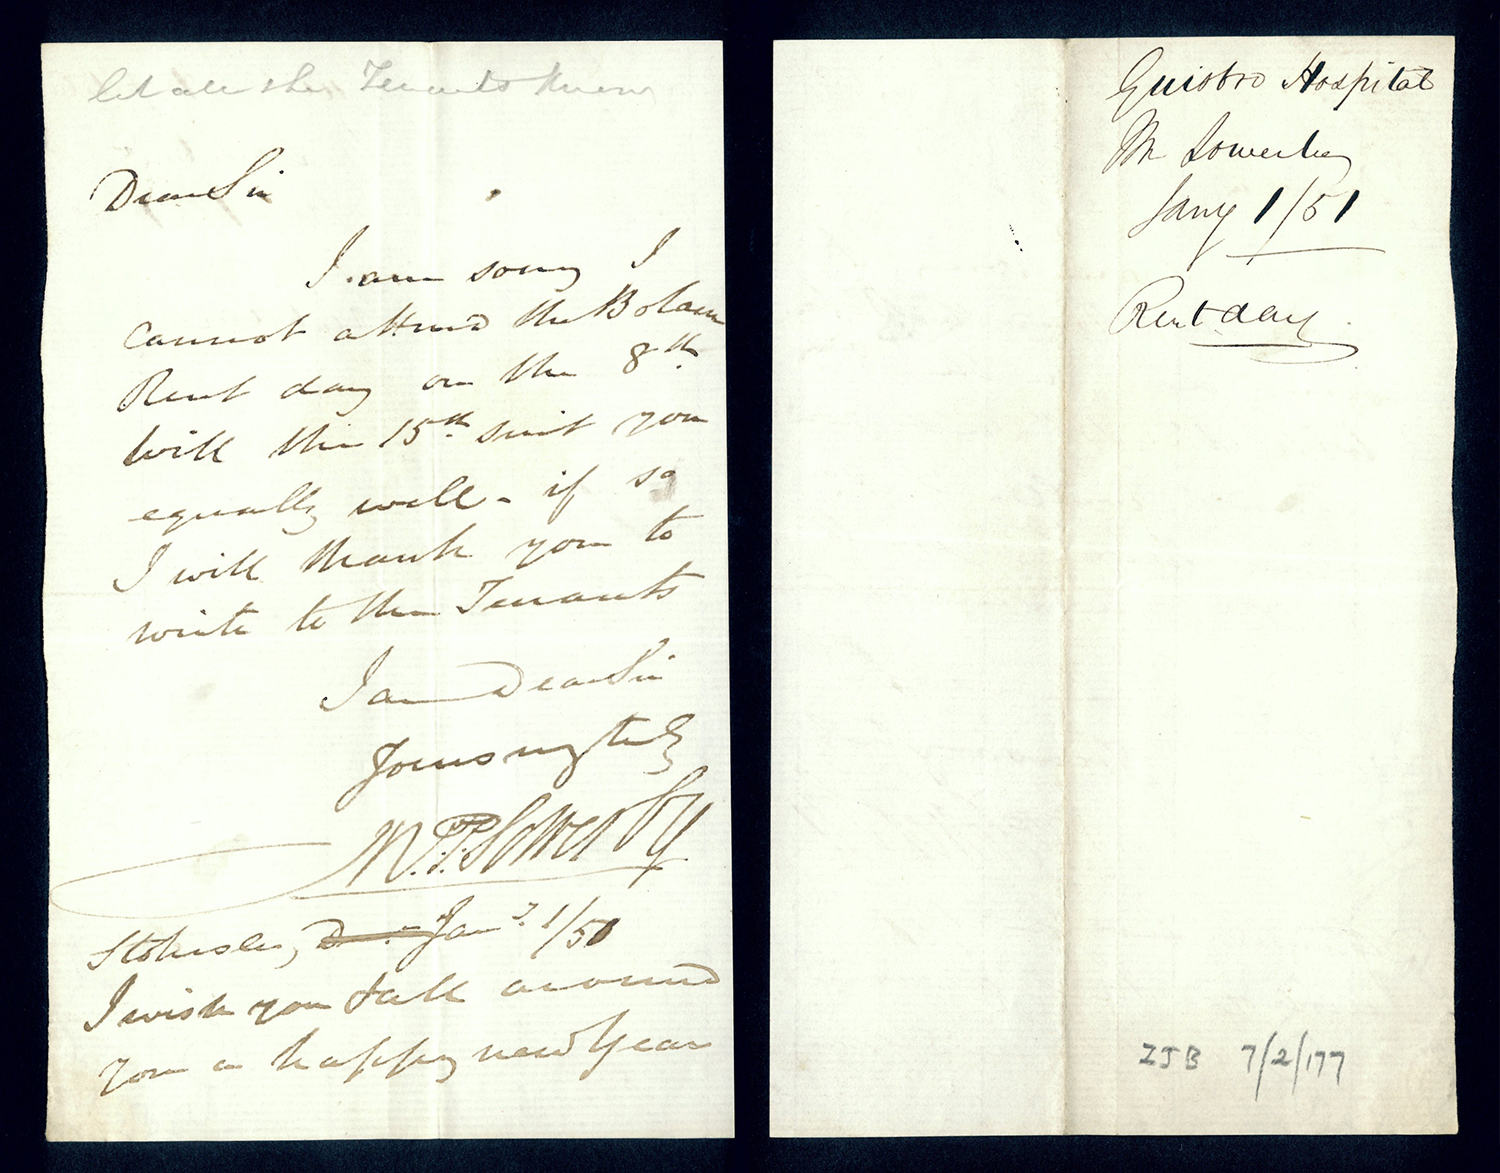 let all the Tenants know
Dear Sir
I am sorry I
cannot attend the Bolam
Rent day on the 8th
will the 15th suit you
equally well - if so
I will thank you to
write to the Tenants
I am Dear Sir
Yours mystely
W.P. Sowerby
Stokesley, Jany 1/51
I wish you & all around
you a happy new Year
Guisbro Hospital
Mr Sowerby
Jany 1/51
Rent day
ZJB 7/2/177